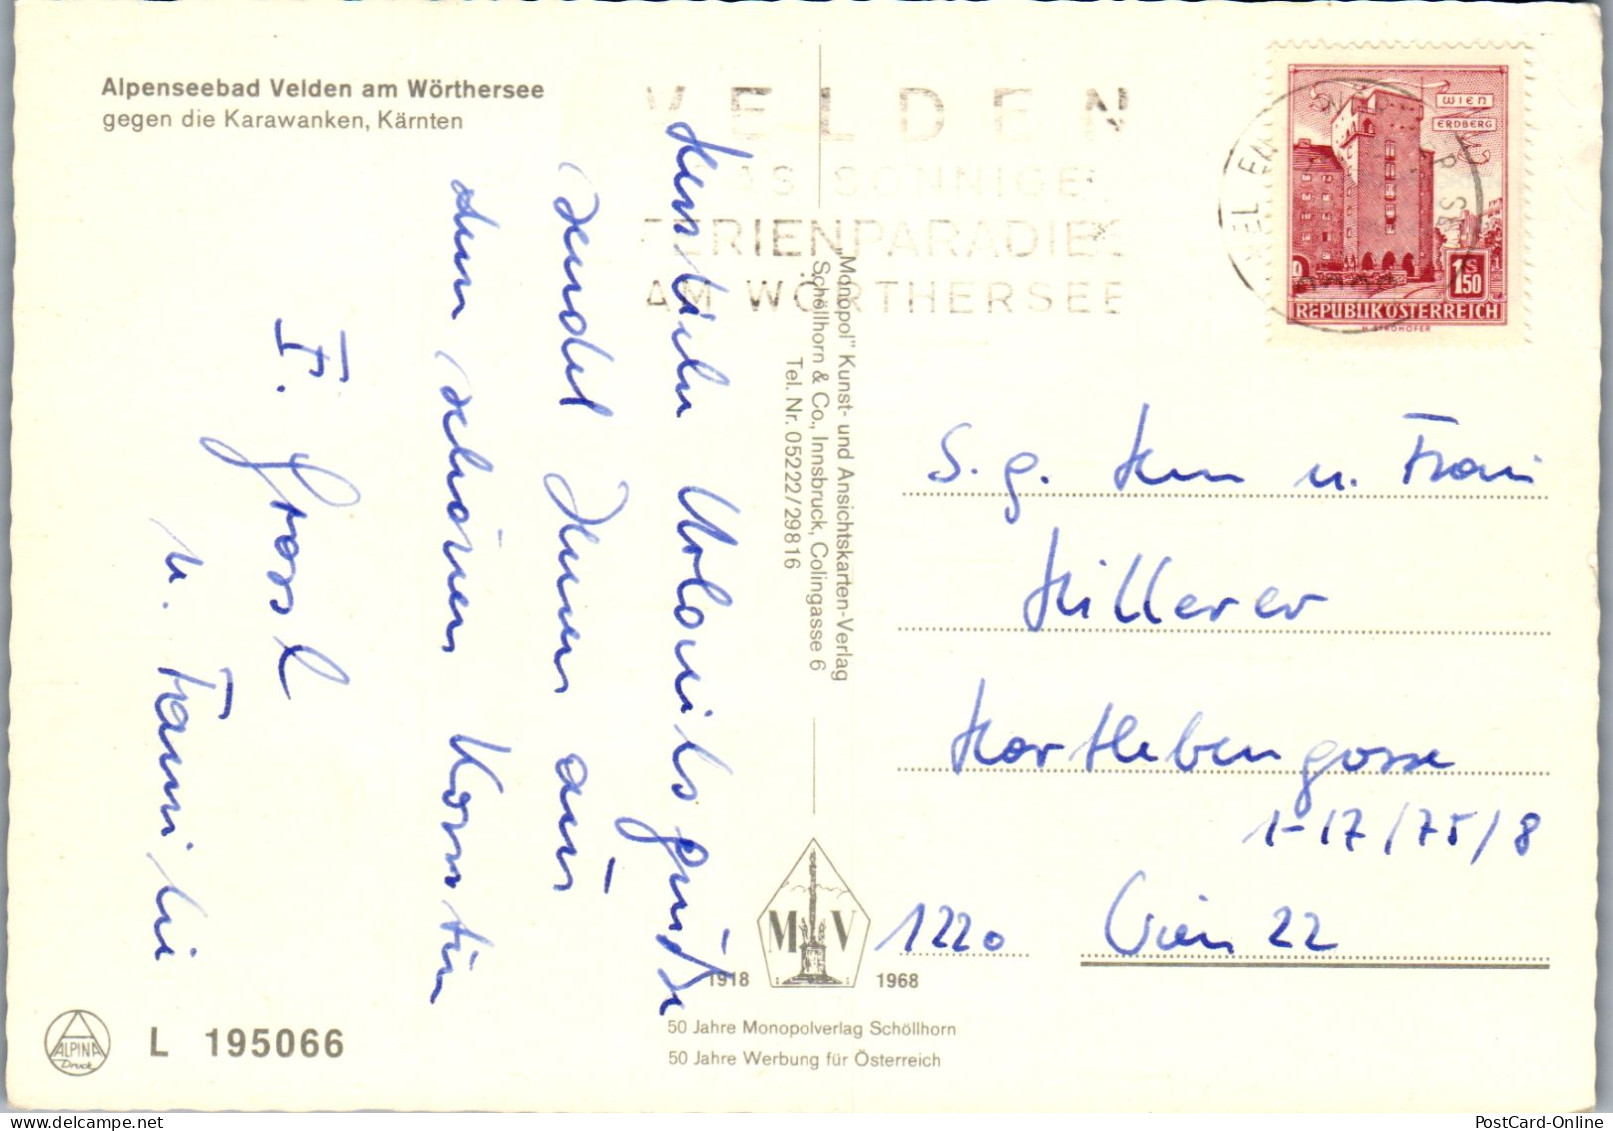 Alpenseebad Velden am Wörthersee
gegen die Karawanken, Kärnten
VELDEN
DAS SONNIGE
FERIENPARADIES
AM WÖRTHERSEE
WIEN
ERDBERG
1 S 50
REPUBLIK ÖSTERREICH
H. STROHOFER
Herzliche Urlaubsgrüße
sendet Ihnen aus
dem schönen Kärnten
F. Grossl
u. Familie
"Monopol" Kunst- und Ansichtskarten-Verlag
Schöllhorn & Co., Innsbruck, Colingasse 6
Tel. Nr. 05222/29816
S. g. Herrn u. Frau
Hillerer
Hartlebengasse
1-17/75/8
1220 Wien 22
M V
1918 1968
50 Jahre Monopolverlag Schöllhorn
50 Jahre Werbung für Österreich
ALPINA
Druck
L 195066
PostCard-Online